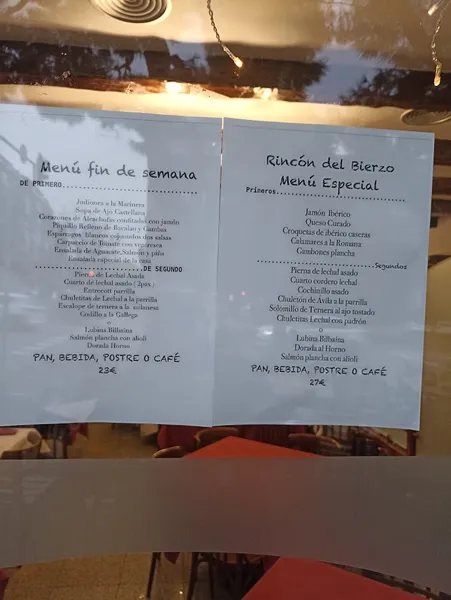 Menú fin de semana
DE PRIMERO
Judiones a la Marinera
Sopa de Ajo Castellana
Corazones de Alcachofas confitadas con jamón
Piquillo Relleno de Bacalao y Gambas
Espárragos blancos cojonudos dos salsas
Carpaccio de Tomate con ventresca
Ensalada de Aguacate, Salmón y piña
Ensalada especial de la casa
DE SEGUNDO
Pierna de Lechal Asada
Cuarto de lechal asado ( 2pax )
Entrecott parrilla
Chuletitas de Lechal a la parrilla
Escalope de ternera a la
Codillo a la Gallega
o
Lubina Bilbaína
Salmón plancha con alioli
Dorada Horno
PAN, BEBIDA, POSTRE O CAFÉ
23€
Rincón del Bierzo
Menú Especial
Primeros
Jamón Ibérico
Queso Curado
Croquetas de ibérico caseras
Calamares a la Romana
Gambones plancha
Segundos
Pierna de Lechal asado
Cuarto cordero lechal
Cochinillo asado
Chuletón de Ávila a la parrilla
Solomillo de Ternera al ajo tostado
Chuletitas Lechal con padrón
o
Lubina Bilbaína
Dorada al Horno
Salmón plancha con alioli
PAN, BEBIDA, POSTRE O CAFÉ
27€